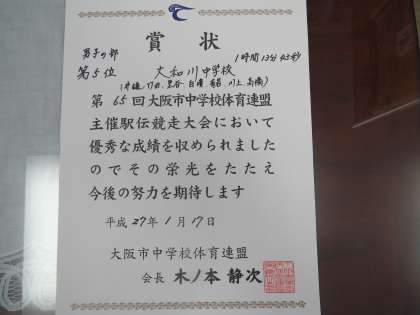 賞状
男子の部
1時間13分43秒
第5位 大和川中学校
第65回大阪市中学校体育連盟
主催駅伝競走大会において
優秀な成績を収められました
のでその栄光をたたえ
今後の努力を期待します
平成27年1月17日
大阪市中学校体育連盟
会長 木ノ本 静次